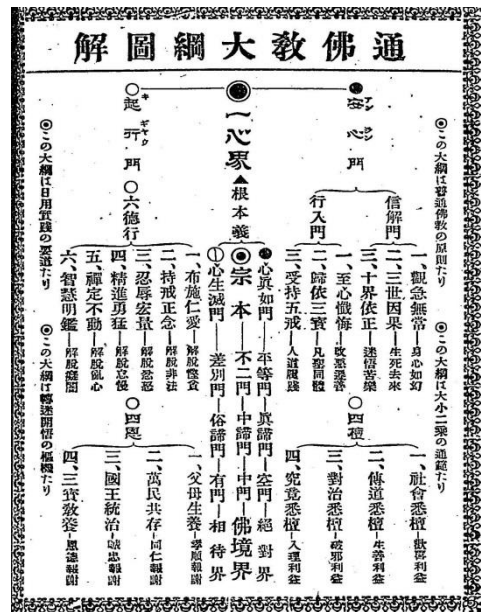 通佛教大綱圖解
◉この大綱は普通佛教の原則たり
◉この大綱は大小二乘の通範たり
安心門
アンジン
信解門
一、觀念無常―身心如幻
二、三世因果―生死去來
三、十界依正―迷悟苦樂
行入門
一、至心懺悔―改惡遷善
二、歸依三寶―凡聖同體
三、受持五戒―人道履踐
〇四檀
一、社會悉檀―歡喜利益
二、傳道悉檀―生善利益
三、對治悉檀―破邪利益
四、究竟悉檀―入理利益
◉一心界
▲根本義
心眞如門―平等門―眞諦門―空門―絕對界
◉宗本―不二門―中諦門―中門―佛境界
心生滅門―差別門―俗諦門―有門―相待界
〇起行門
キギヤウ
〇六德行
一、布施仁愛―解脫慳貪
二、持戒正念―解脫非法
三、忍辱宏量―解脫忿怒
四、精進勇猛―解脫怠慢
五、禪定不動―解脫亂心
六、智慧明鑑―解脫癡闇
〇四恩
一、父母生養―孝順報謝
二、萬民共存―同仁報謝
三、國王統治―誠忠報謝
四、三寶敎養―恩德報謝
◉この大綱は日用實踐の要道たり
◉この大綱は轉迷開悟の樞機たり